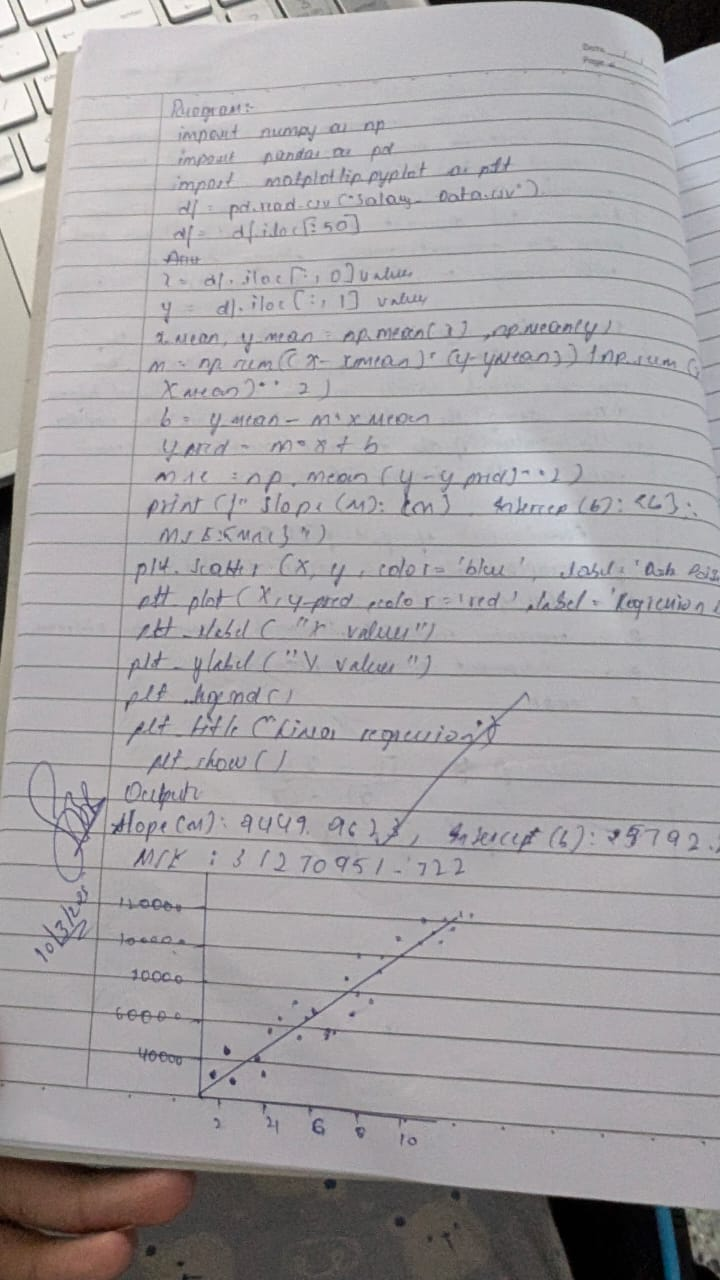 Date
Page
Program:-
import numpy as np
import pandas as pd
import matplotlip.pyplot as plt
df = pd.read_csv ("Salary_Data.csv")
df = df.iloc[:50]
x = df.iloc[:, 0] values
y = df.iloc[:, 1] values
x mean, y mean = np.mean(x), np.mean(y)
m = np.sum((x - xmean)* (y-ymean)) / np.sum (
x mean)** 2)
b = y mean - m*x mean
y pred = m*x + b
mse = np.mean (y-y pred)**2)
print (f" Slope (m): {m} Intercep (b): {b}
MSE:{mse}")
plt. scatter (x, y, color= 'blue', label= 'Data
plt. plot (x, y-pred, color= 'red', label= 'Regression
plt. xlabel ( "x values")
plt. ylabel ("Y values")
plt legend()
plt title ("Linear regression")
plt show()
Output:
Slope (m): 9449. 962, Intercept (b): 25792.
MSE : 31270951.722
10/3/20
120000
100000
10000
60000
40000
2 4 6 8 10